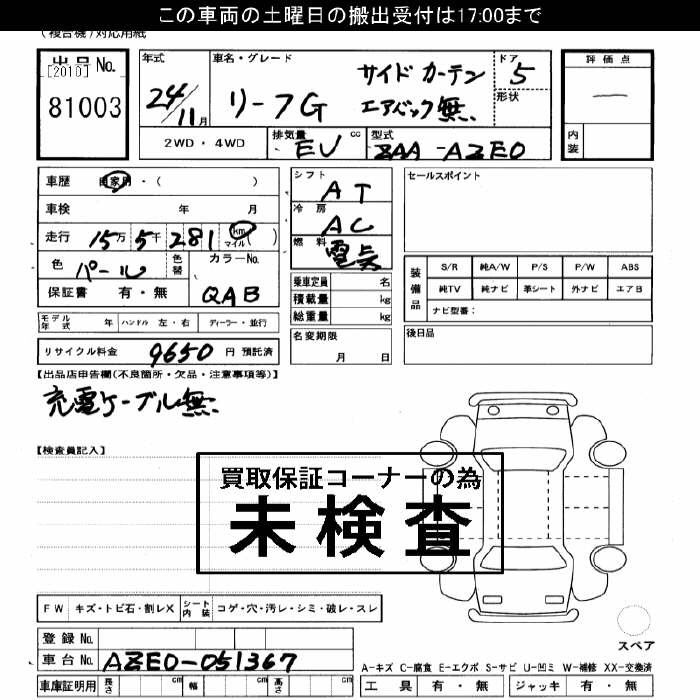 この車両の土曜日の搬出受付は17:00まで
(複合機)対応用紙
出品No.
[2010]
81003
年式
24/11月
車名・グレード
リーフG
サイド カーテン
エアバック無
ドア
5
形状
評価点
—
内装
2WD・4WD
排気量
EV cc
型式
ZAA-AZE0
車歴 自家用・( )
車検 年 月
走行 15万5千281 km マイル( )
色 パール 色替
カラーNo.
QAB
保証書 有・無
シフト AT
冷房 AC
燃料 電気
乗車定員 名
積載量 kg
総重量 kg
名変期限
月 日
セールスポイント
装備品
S/R 純A/W P/S P/W ABS
純TV 純ナビ 革シート 外ナビ エアB
ナビ型番:
後日品
モデル年式 年 ハンドル 左・右 ディーラー・並行
リサイクル料金 9650 円 預託済
【出品店申告欄(不良箇所・欠品・注意事項等)】
充電ケーブル無
【検査員記入】
買取保証コーナーの為
未検査
FW キズ・トビ石・割レX シート内装 コゲ・穴・汚レ・シミ・破レ・スレ
登録No.
車台No. AZE0-051367
車庫証明用 長さ cm 幅 cm 高さ cm
スペア
A-キズ C-腐食 E-エクボ S-サビ U-凹ミ W-補修 XX-交換済
工具 有・無 ジャッキ 有・無